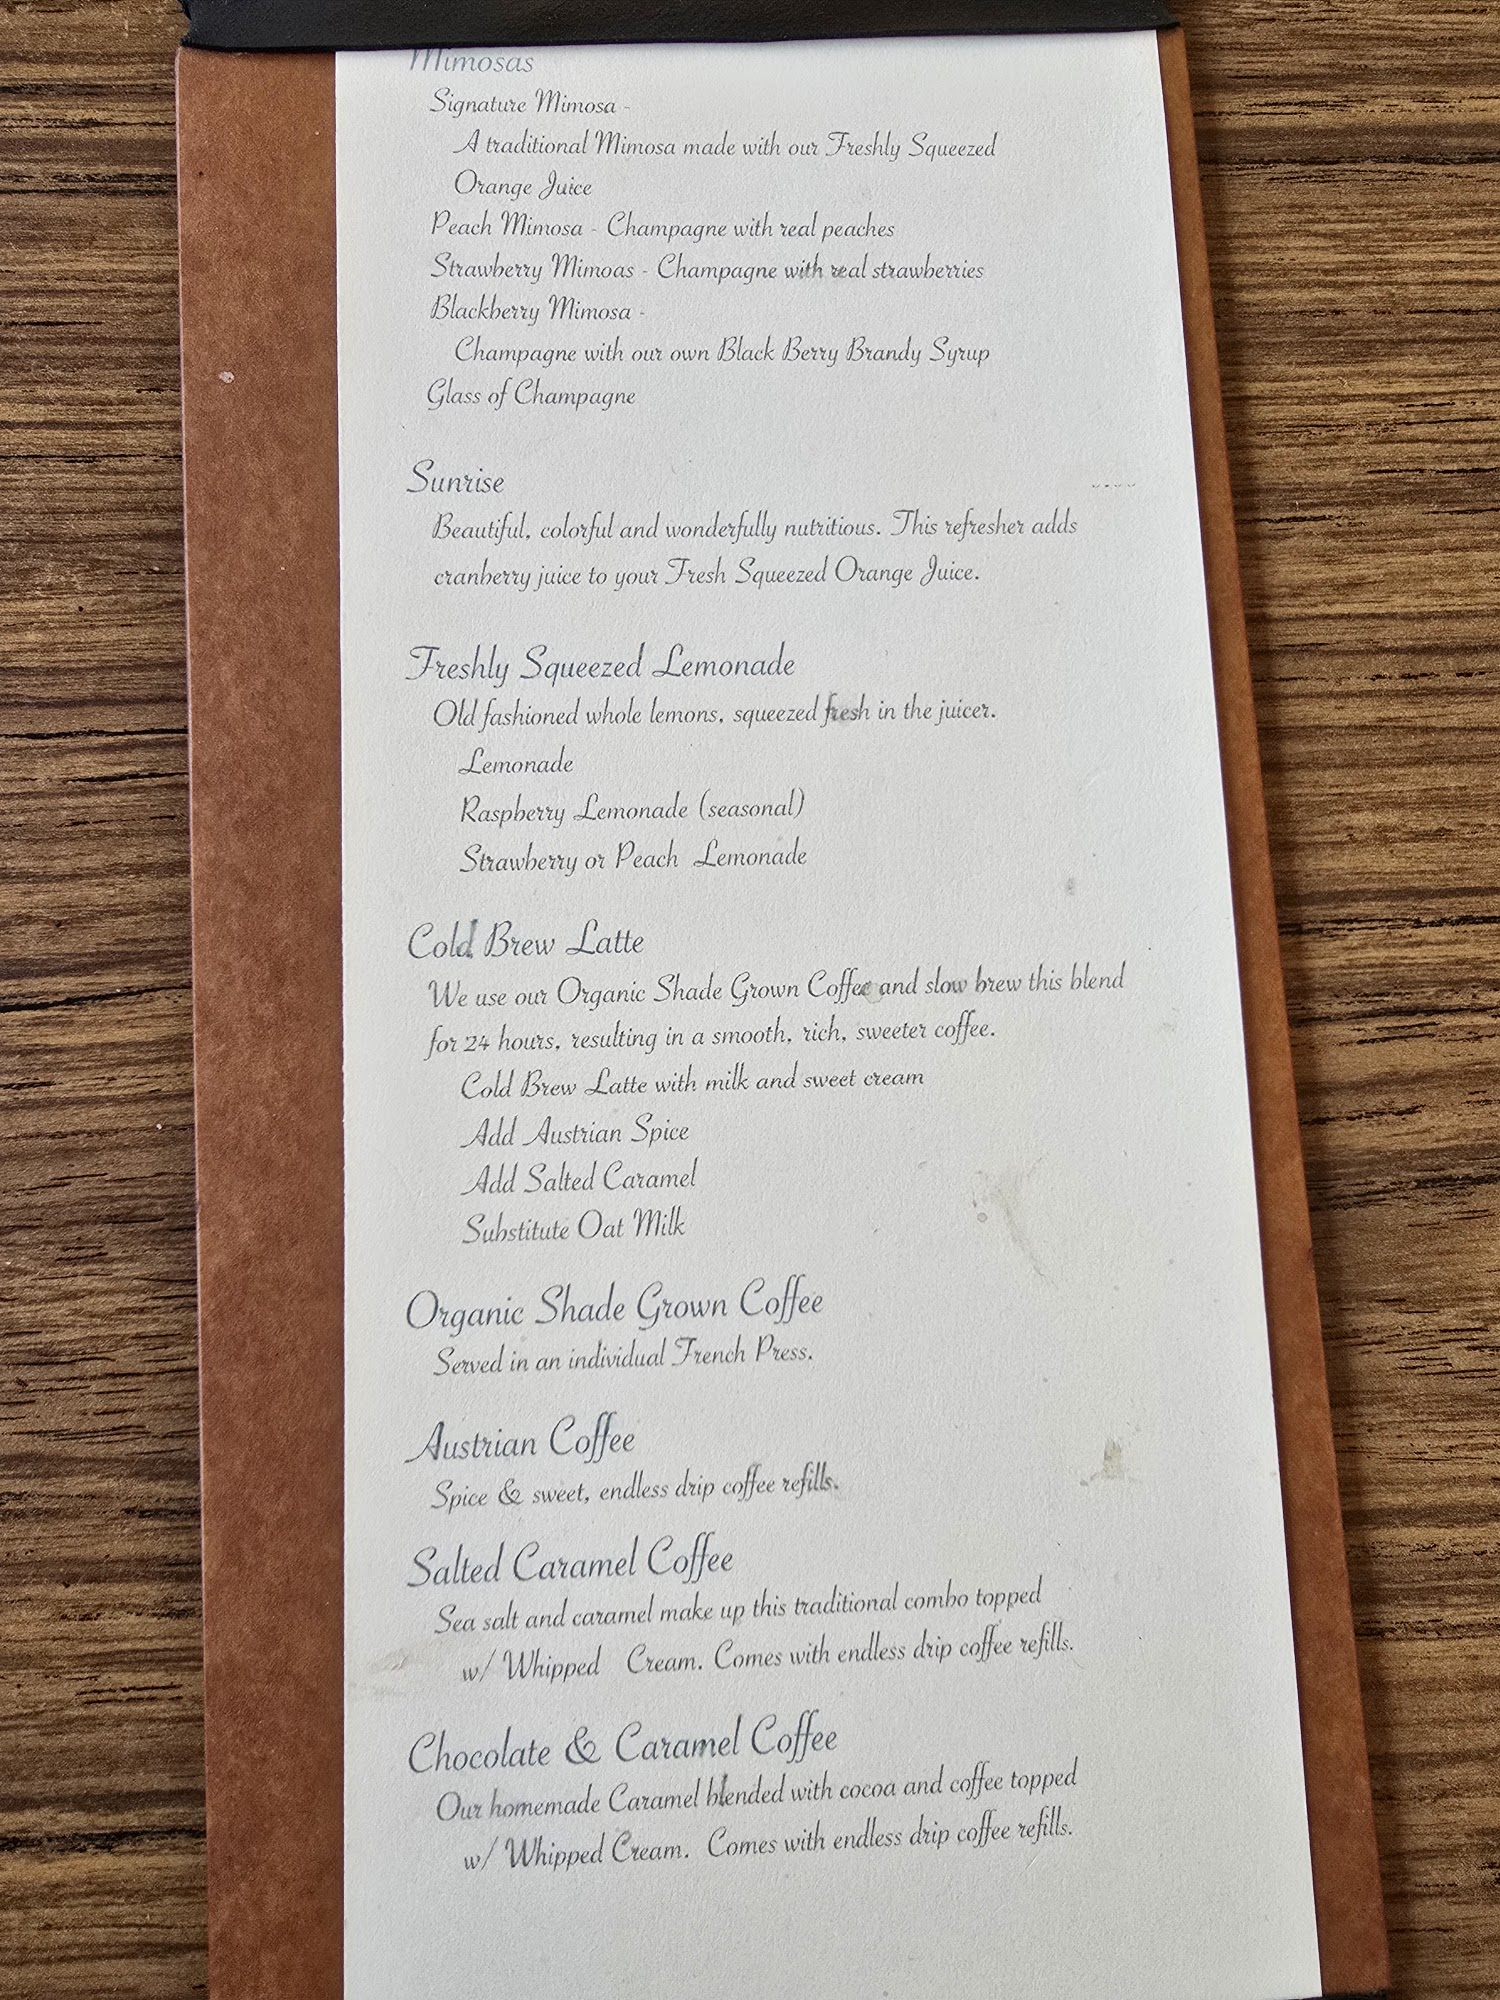 Mimosas
Signature Mimosa -
A traditional Mimosa made with our Freshly Squeezed
Orange Juice
Peach Mimosa - Champagne with real peaches
Strawberry Mimoas - Champagne with real strawberries
Blackberry Mimosa -
Champagne with our own Black Berry Brandy Syrup
Glass of Champagne
Sunrise
Beautiful, colorful and wonderfully nutritious. This refresher adds
cranberry juice to your Fresh Squeezed Orange Juice.
Freshly Squeezed Lemonade
Old fashioned whole lemons, squeezed fresh in the juicer.
Lemonade
Raspberry Lemonade (seasonal)
Strawberry or Peach Lemonade
Cold Brew Latte
We use our Organic Shade Grown Coffee and slow brew this blend
for 24 hours, resulting in a smooth, rich, sweeter coffee.
Cold Brew Latte with milk and sweet cream
Add Austrian Spice
Add Salted Caramel
Substitute Oat Milk
Organic Shade Grown Coffee
Served in an individual French Press.
Austrian Coffee
Spice & sweet, endless drip coffee refills.
Salted Caramel Coffee
Sea salt and caramel make up this traditional combo topped
w/ Whipped Cream. Comes with endless drip coffee refills.
Chocolate & Caramel Coffee
Our homemade Caramel blended with cocoa and coffee topped
w/ Whipped Cream. Comes with endless drip coffee refills.